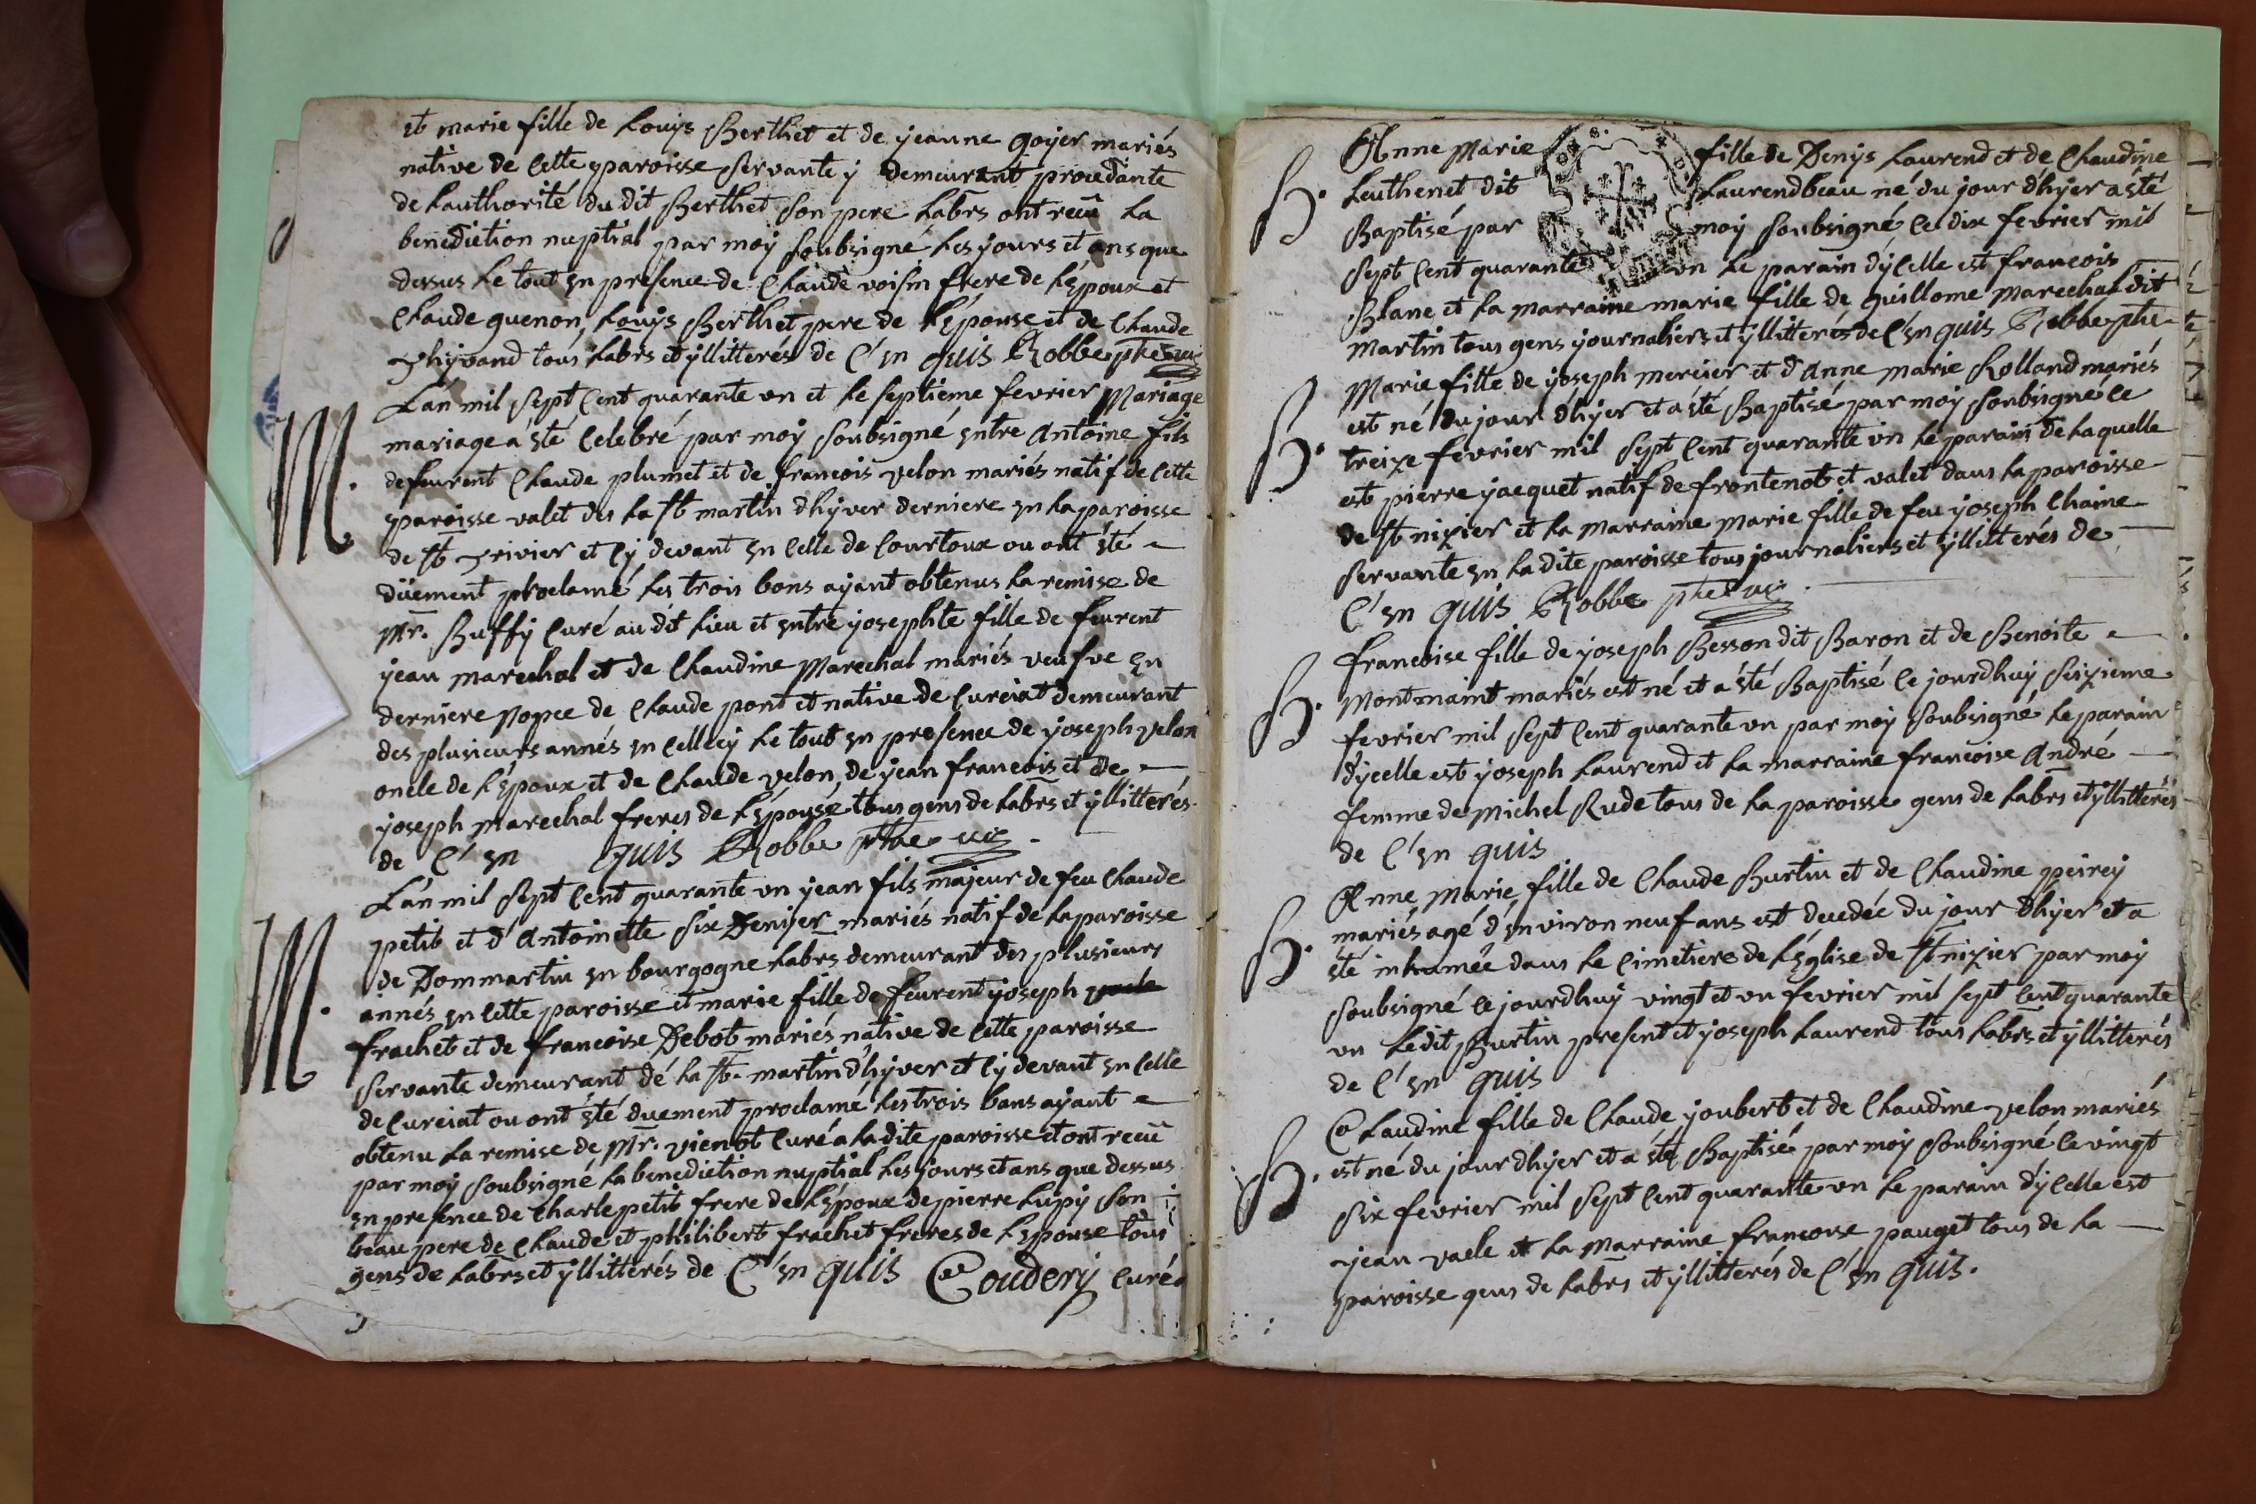 et marie fille de Louys Berthet et de yeanne goyer mariés
native de Cette paroisse servante y demeurant procedante
de Lauthorité du dit Berthet son pere Labrs ont recû La
benediction nuptial par moy soubsigné Les yours et ans que
dessus Le tout en presence de Claude voisin frere de L'époux et
Claude guenon, Louys Berthet pere de L'Epouse et de Claude
tous Labrs et yllitterés de C'en quis Robbe ptre
M. L'an mil sept Cent quarante un et Le septiéme fevrier Mariage
mariage a été Celebré par moy soubsigné entre Antoine fils
de feurent Claude plumet et de francois velon mariés natif de Cette
paroisse valet des La St martin dhyver derniere en La paroisse
de St trivier et Cy devant en Celle de Courtoux ou ont été
düement proclamé Les trois bans ayant obtenus La remise de
Mr. Buffy Curé au dit Lieu et entre yosephte fille de feurent
yean marechal et de Claudine Marechal mariés veufve en
derniere nopce de Claude pont et native de Curciat demeurant
des plusieurs annés en Cellecy Le tout en presence de yoseph velon
oncle de L'Epoux et de Claude velon, de yean francois et de
yoseph marechal freres de L'épouse tous gens de Labrs et yllitterés
de C'en quis Robbe ptre
M. L'an mil sept Cent quarante un yean fils majeur de feu Claude
petit et d'Antoinette six Denijer mariés natif de La paroisse
de Dommartin en bourgogne Labrs demeurant des plusieurs
annés en Cette paroisse et marie fille de feurent yoseph
frachet et de francoise Debot mariés native de Cette paroisse
servante demeurant dé La St. martin d'hyver et Cy devant en Celle
de Curciat ou ont été duement proclamé Les trois bans ayant
obtenu La remise de Mr. vienot Curé a La dite paroisse et ont recû
par moy soubsigné La benediction nuptial Les jours et ans que dessus
en presence de Charle petit frere de L'Epoux de pierre Lupy son
beau pere de Claude et philibert frachet freres de L'Epouse tous
gens de Labrs et yllitterés de C'en quis Coudery Curé
B. Anne Marie fille de Denys Laurend et de Claudine
Leuthenet dit Laurendbeau né du jour d'hyer a été
Baptisé par moy soubsigné Ce dix fevrier mil
sept Cent quarante un Le parain d'yCelle est francois
Blanc et La marraine marie fille de guillome Marechal dit
Martin tous gens yournaliers et yllitterés de C'en quis Robbe ptre
B. Marie fille de yoseph mercier et d'Anne marie Rolland mariés
est né du jour d'hyer et a été Baptisé par moy soubsigné Ce
treize fevrier mil sept Cent quarante un Le parain de Laquelle
est pierre yacquet natif de frontenot et valet dans La paroisse
de St nizier et La marraine marie fille de feu yoseph Chaine
servante en La dite paroisse tous journaliers et yllitterés de
C'en quis Robbe ptre
B. francoise fille de yoseph Besson dit Baron et de Benoite
Montmaint mariés est né et a été Baptisé Ce jourdhuy seizieme
fevrier mil sept Cent quarante un par moy soubsigné Le parain
dycelle est yoseph Laurend et La marraine francoise André
femme de Michel Rude tous de La paroisse gens de Labrs et yllitterés
de C'en quis
Anne Marie fille de Claude Burtin et de Claudine peirey
mariés agé d'environ neuf ans est decedée du jour d'hyer et a
été inhumée dans Le Cimetiere de L'Eglise de St nizier par moy
soubsigné Ce jourdhuy vingt et un fevrier mil sept Cent quarante
un Ledit Burtin present et yoseph Laurend tous Labrs et yllitterés
de C'en quis
B. Claudine fille de Claude youbert et de Claudine velon mariés
est né du jour dhyer et a été Baptisé par moy soubsigné Ce vingt
six fevrier mil sept Cent quarante un Le parain d'yCelle est
yean vacle et La Marraine francoise pauget tous de La
paroisse gens de Labrs et yllitterés de C'en quis.